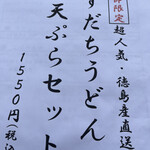 限定
超人気・徳島産直送
すだちうどん
天ぷらセット
1550円(税込